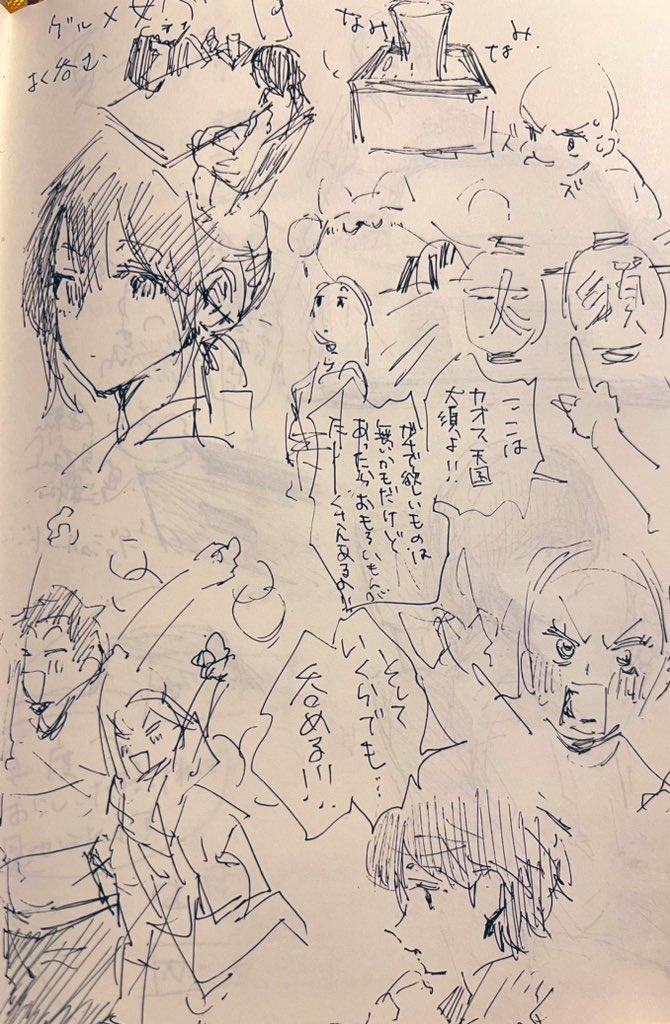 よく呑む
なみ
なみ
ズ
ズ
大須
ここは
カオス天国
大須よ!!
ガチで欲しいものは
無いかもだけど
あったらおもろいもんが
そして
いくらでも…
呑める!!!